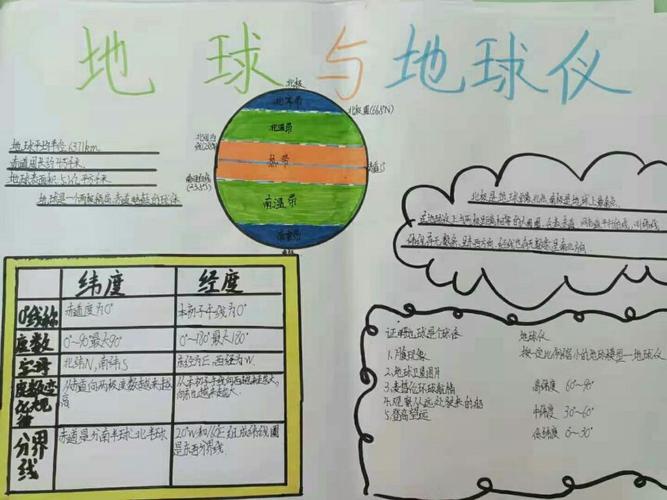 地球与地球仪
北极
北寒带
北极圈(66.5°N)
北温带
热带
南温带
南寒带
地球平均半径6371km.
赤道周长约4万千米.
地球表面积5.1亿平方千米
地球是一个两极稍扁,赤道略鼓的球体
纬度
经度
0°线
赤道度为0°
本初子午线为0°
度数
0°~90°最大90°
0°~180°最大180°
北纬N,南纬S
东经为E,西经为W.
从赤道向两极度数越来越高
从本初子午线向
越来越大
分界线
赤道是分南半球北半球
20°W和160°E组成
圈是东西分界线.
证明地球是个球体
1.月食现象
2.地球卫星图片
3.麦哲伦环球航行
4.观察从远处驶来的船
5.登高望远
地球仪
按一定比例缩小的地球模型—地球仪
高纬度 60°~90°
中纬度 30°~60°
低纬度 0°~30°